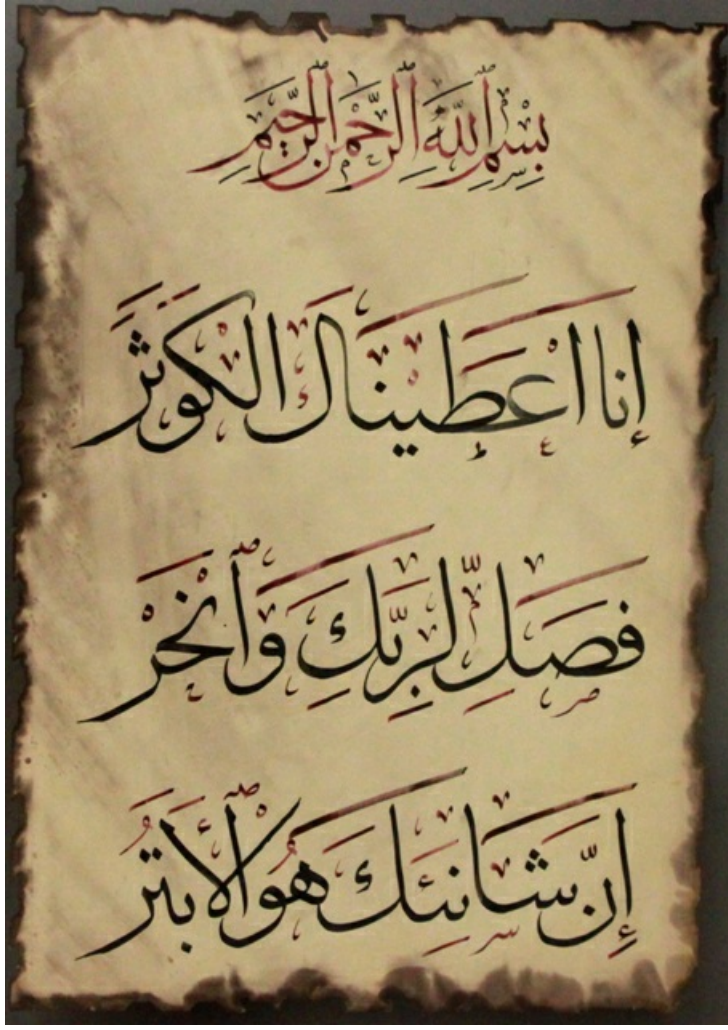 بِسْمِ ٱللَّهِ ٱلرَّحْمٰنِ ٱلرَّحِيمِ
إنا اعْطَيْنَاكَ الْكَوْثَرَ
فَصَلِّ لِرَبِّكَ وَٱنْحَرْ
إِنَّ شَانِئَكَ هُوَ ٱلْأَبْتَرُ